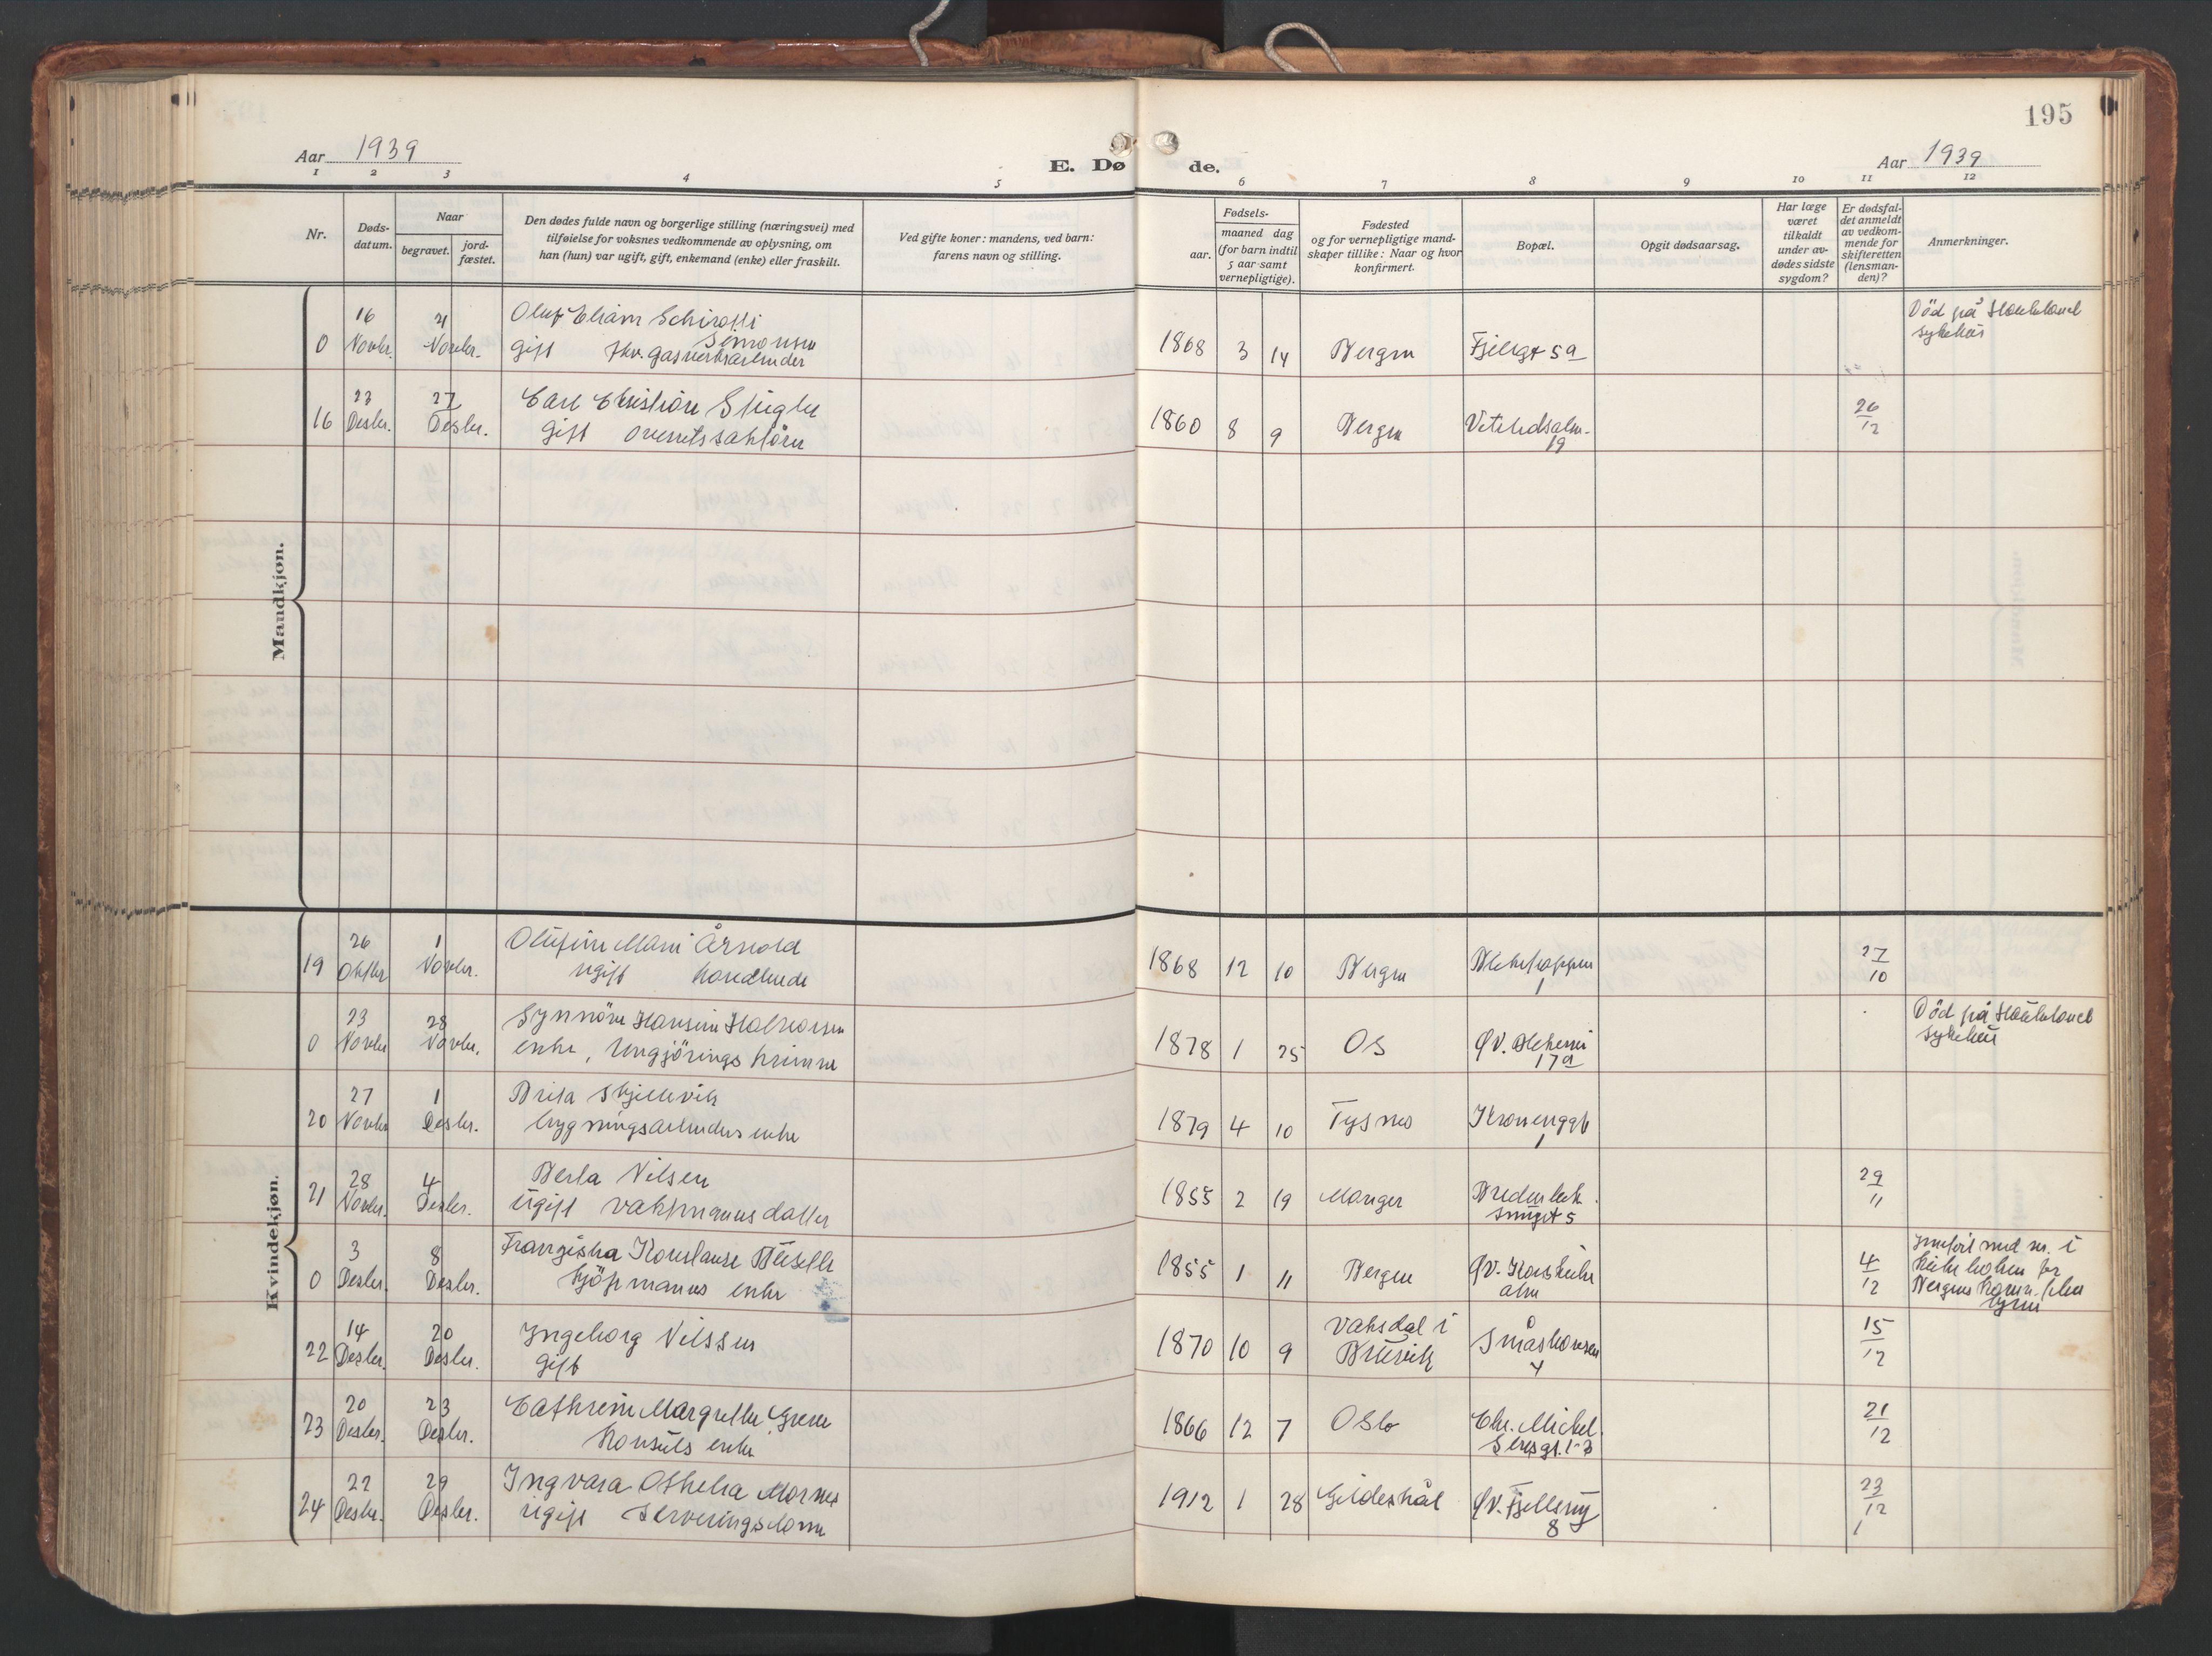 195
Aar 1939
E. Dø de.
Aar 1939
1 2 3 4 5 6 7 8 9 10 11 12
Nr.
Døds-
datum.
Naar
begravet.
jord-
fæstet.
Den dødes fulde navn og borgerlige stilling (næringsvei) med
tilføielse for voksnes vedkommende av oplysning, om
han (hun) var ugift, gift, enkemand (enke) eller fraskilt.
Ved gifte koner: mandens, ved barn:
farens navn og stilling.
Fødsels-
aar.
maaned dag
(for barn indtil
5 aar samt
vernepligtige).
Fødested
og for vernepligtige mand-
skaper tillike: Naar og hvor
konfirmert.
Bopæl.
Opgit dødsaarsag.
Har læge
været
tilkaldt
under av-
dødes sidste
sygdom?
Er dødsfal-
det anmeldt
av vedkom-
mende for
skifteretten
(lensman-
den)?
Anmerkninger.
Mandkjøn.
0 16 Novbr. 21 Novbr. Oluf Eliam
Simonsen
gift fhv. gasverksarbeider
1868 3 14 Bergen Fjellgt 5a
Död på Haukeland
sykehus
16 23 Desbr. 27 Desbr. Carl Christian
gift overretssakförer
1860 8 9 Bergen
19
26/12
Kvindekjøn.
19 26 Oktbr 1 Novbr. Olufine Marie Årnold
ugift
1868 12 10 Bergen
1
27/10
0 23 Novbr 28 Novbr. Synnöve Hansine Halvorsen
enke, rengjörings kvinne
1878 1 25 Os Øv. Blekevei
17a
Död på Haukeland
sykehus
20 27 Novbr 1 Desbr. Brita Skjellvik
bygningsarbeiders enke
1879 4 10 Tysnes
1
21 28 Novbr. 4 Desbr. Berta Nilsen
ugift vaktmanns datter
1855 2 19 Manger
smuget 5
29/11
0 3 Desbr. 8 Desbr. Franziska Konstanse
kjöpmanns enke
1855 1 11 Bergen Øv. Korskirke
alm
4/12
Innfört med nr. i
kirkeboken for
Bergens
22 14 Desbr. 20 Desbr. Ingeborg Nilssen
gift
1870 10 9 Vaksdal i
Bruvik
Småskansen
4
15/12
23 20 Desbr. 23 Desbr. Cathrine Margrethe
Konsuls enke
1866 12 7 Oslo Chr. Michel
sensgt. 1-3
21/12
24 22 Desbr. 29 Desbr. Ingvara Othelia
ugift Serveringsdame
1912 1 28 Gildeskål Øv. Fjellsmug
8
23/12
1